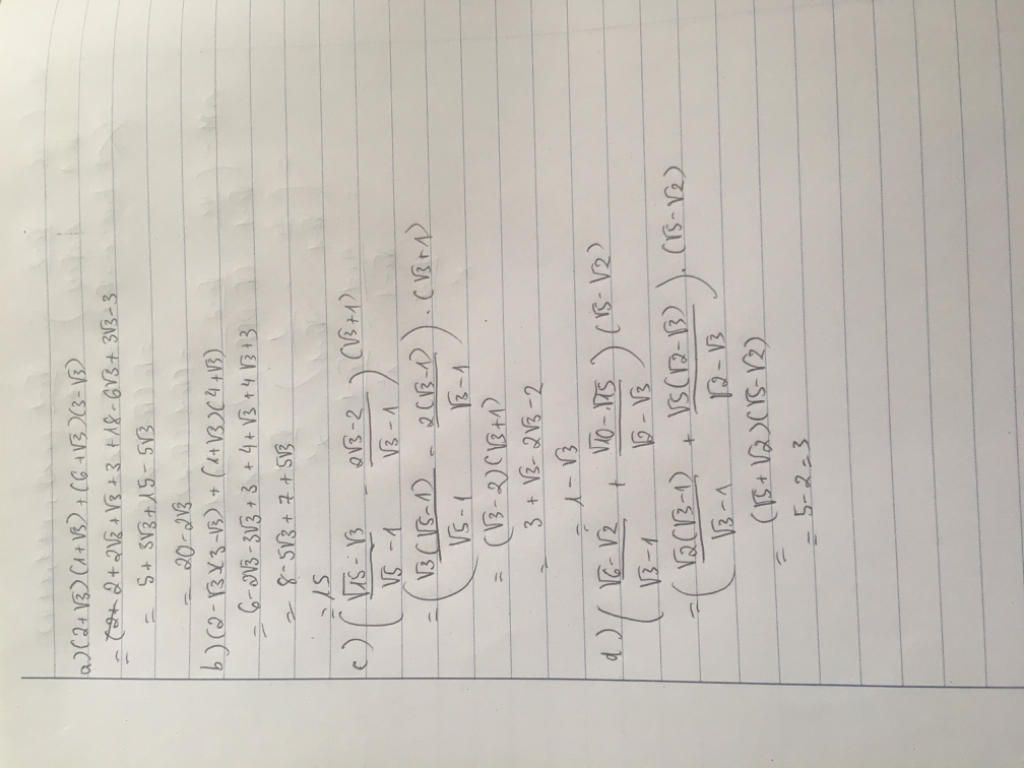 a) (2+√3)(1+√3)+(6+√3)(3-√3)
= 2+2√3+√3+3+18-6√3+3√3-3
= 5+3√3+15-5√3
= 20-2√3
b) (2-√3)(3-√3)+(1+√3)(4+√3)
= 6-2√3-3√3+3+4+√3+4√3+3
= 8-5√3+7+5√3
= 15
c) ((√15-√3)/(√5-1) - (2√3-2)/(√3-1)) (√3+1)
= ((√3(√5-1))/(√5-1) - (2(√3-1))/(√3-1)) . (√3+1)
= (√3-2)(√3+1)
= 3+√3-2√3-2
= 1-√3
d) ((√6-√2)/(√3-1) + (√10-√15)/(√2-√3)) (√5-√2)
= ((√2(√3-1))/(√3-1) + (√5(√2-√3))/(√2-√3)) . (√5-√2)
= (√5+√2)(√5-√2)
= 5-2=3